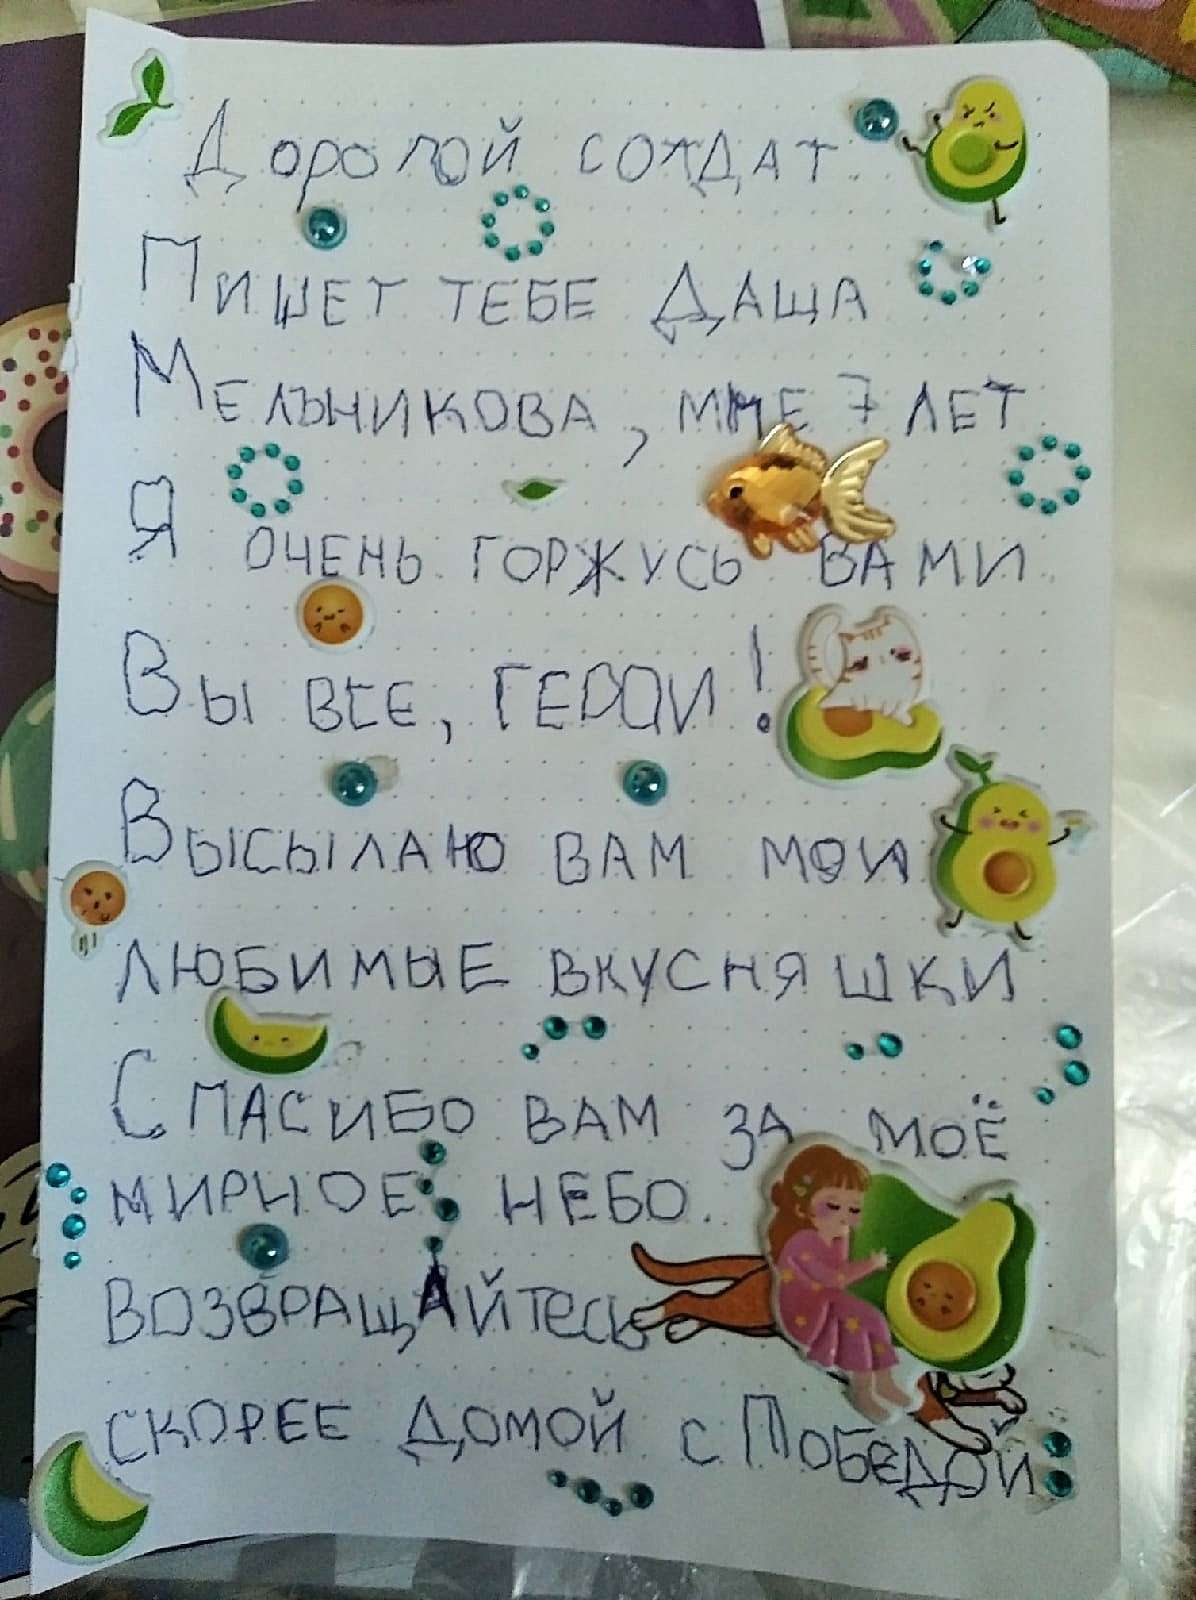 Дорогой солдат
Пишет тебе Даша
Мельникова, мне 7 лет
Я очень горжусь вами
Вы все, герои!
Высылаю вам мои
любимые вкусняшки
Спасибо вам за моё
мирное небо.
возвращайтесь
скорее домой с Победой